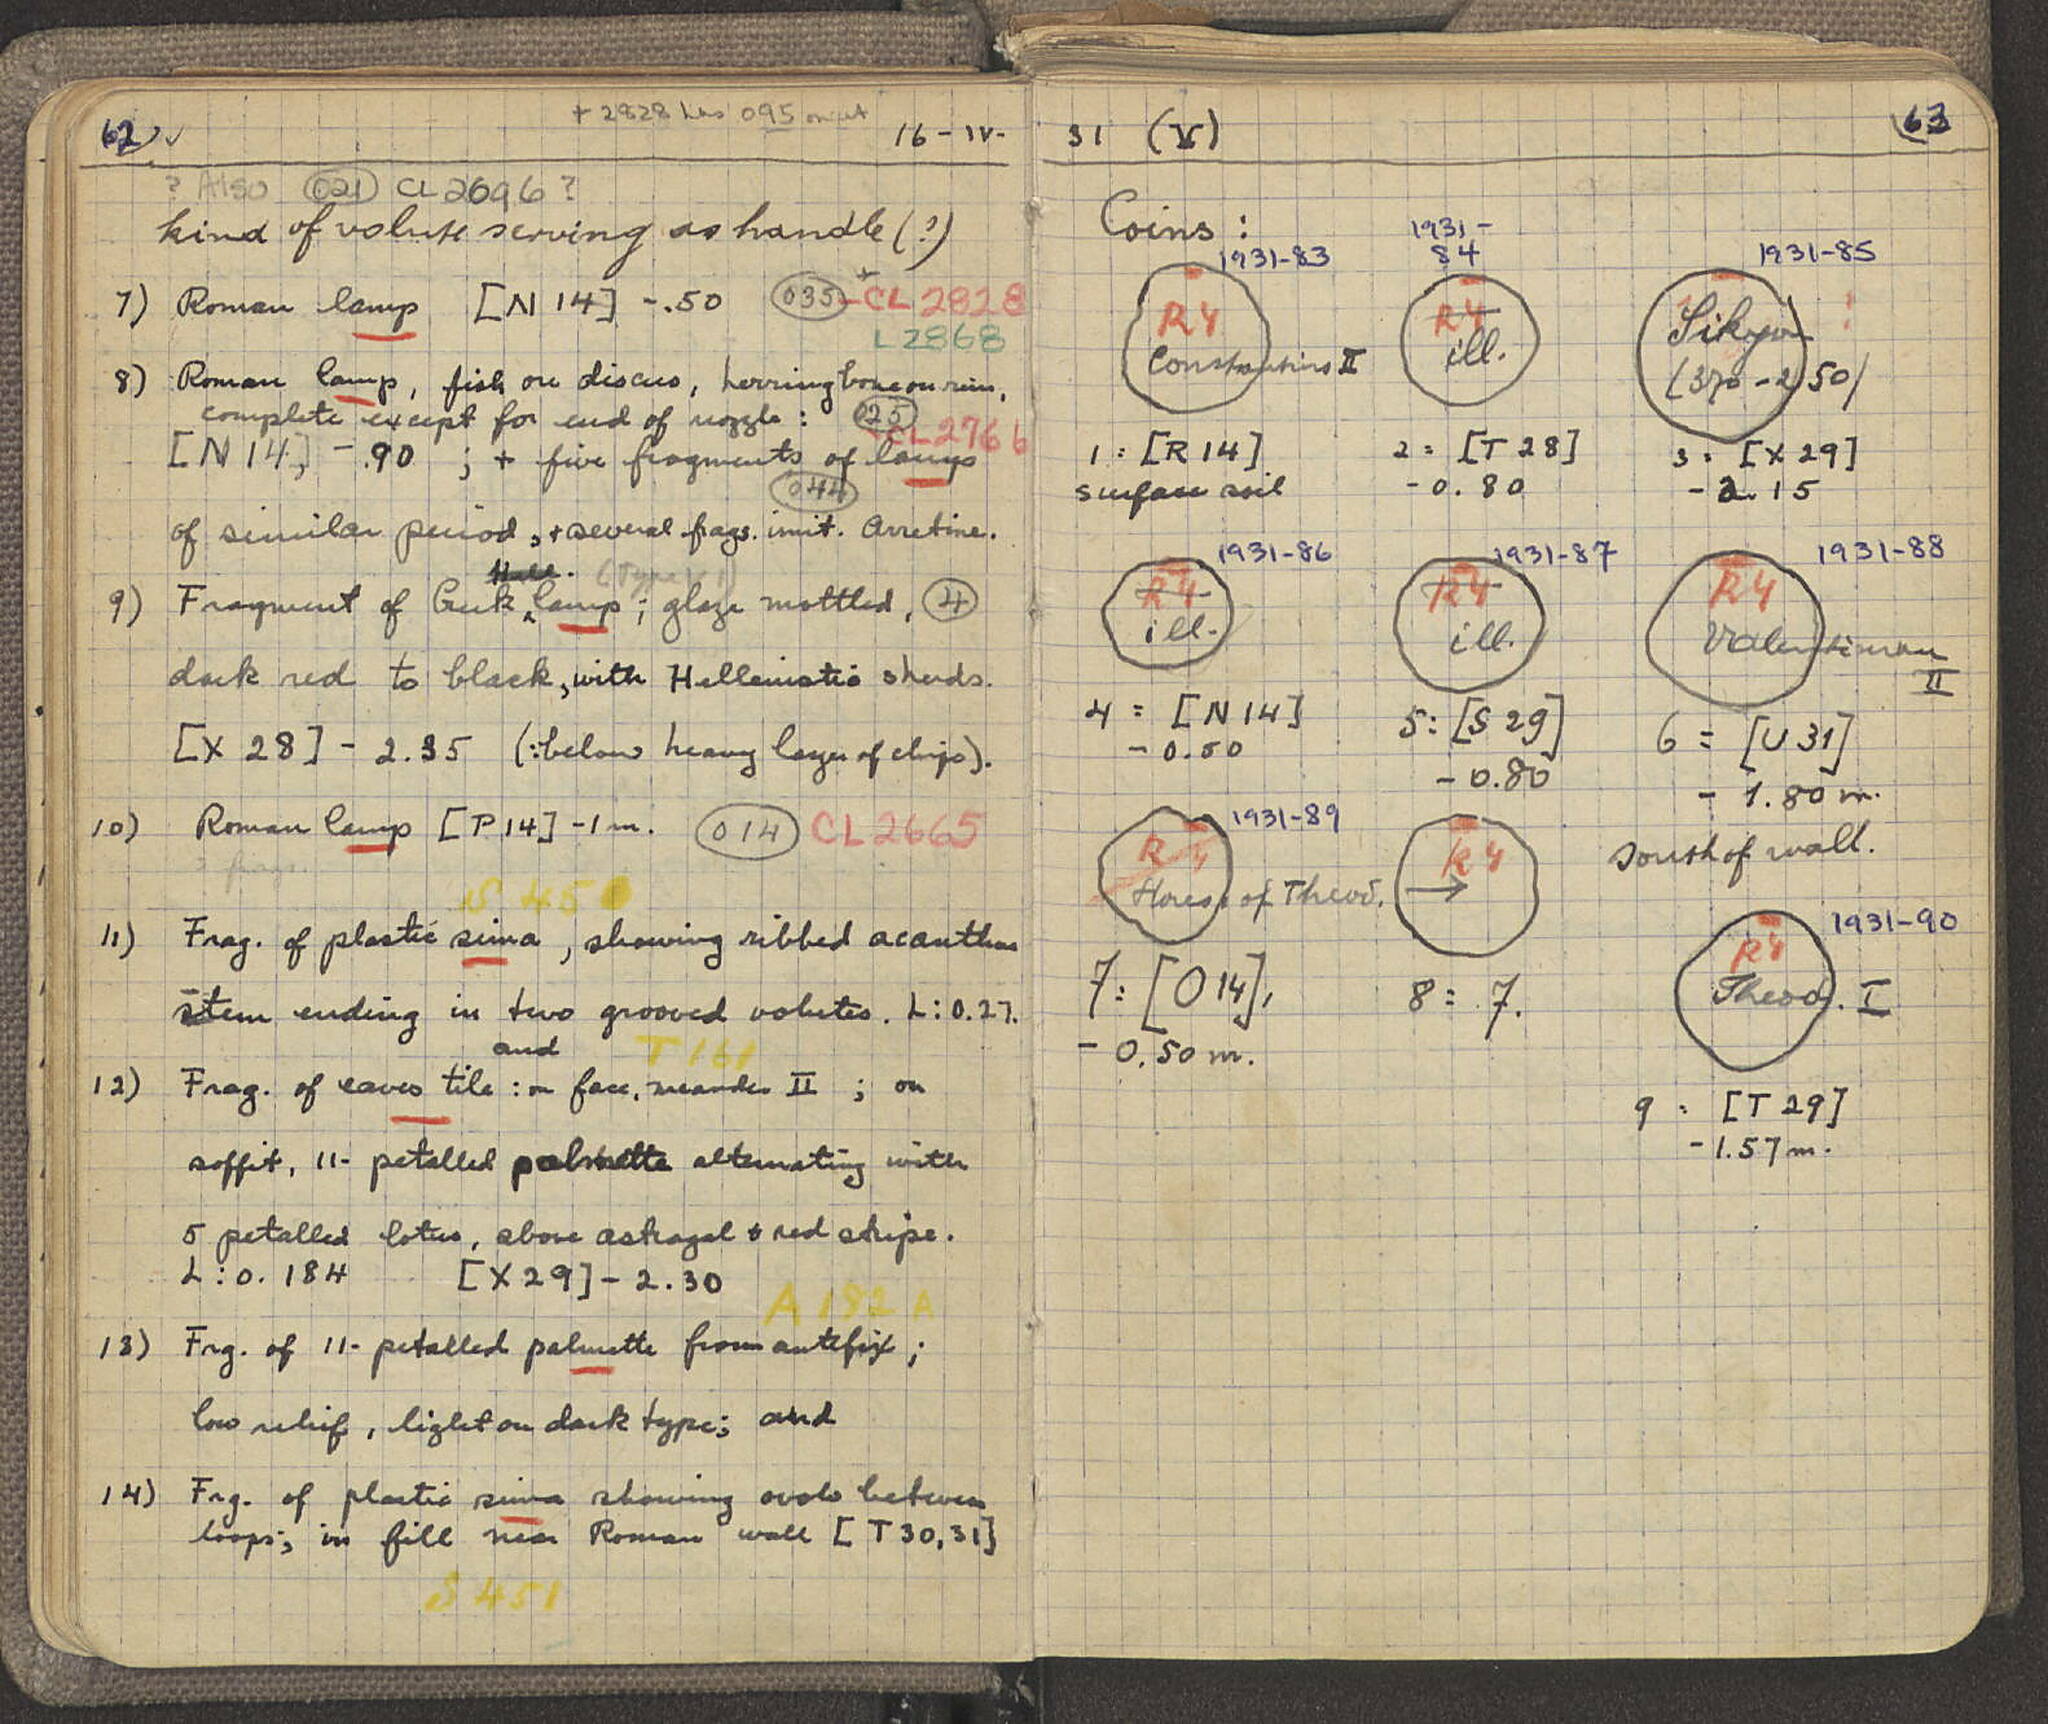 + 2828 has 095 on it
62 16-IV-
? Also 021 CL2696?
kind of volute serving as handle (?)
7) Roman lamp [N 14] -.50 035 + CL 2828
L 2868
8) Roman lamp, fish on discus, herringbone on rim,
complete except for end of nozzle: 025
CL 2766
[N 14], -.90 ; + five fragments of lamps
044
of similar period, + several frags. imit. Arretine.
Hell. (Type VI)
9) Fragment of Greek lamp; glaze mottled, 4
dark red to black, with Hellenistic sherds.
[X 28] - 2.35 (: below heavy layer of chips).
10) Roman lamp [P 14] -1 m. 014 CL 2665
? frags.
S 450
11) Frag. of plastic sima, showing ribbed acanthus
stem ending in two grooved volutes. L: 0.27.
and T 161
12) Frag. of eaves tile: on face, meander II ; on
soffit, 11- petalled palmette alternating with
5 petalled lotus, above astragal & red stripe.
L: 0.184 [X 29] - 2.30
A 182 A
13) Frg. of 11- petalled palmette from antefix ;
low relief, light on dark type; and
14) Frg. of plastic sima showing ovolo between
loops; in fill near Roman wall [T 30, 31]
S 451
31 (V) 63
Coins :
1931-83
1931-
84
1931-85
R4
Constantius II
R4
ill.
Sikyon
(370-250)
!
1: [R 14]
surface soil
2: [T 28]
-0.80
3: [X 29]
-2.15
1931-86
1931-87
1931-88
R4
ill.
R4
ill.
R4
Valentinian
II
4 = [N 14]
- 0.50
5: [S 29]
- 0.80
6 = [U 31]
- 1.80 m.
south of wall.
1931-89
R4
House of Theod. →
R4
7: [O 14],
- 0.50 m.
8 = 7.
1931-90
R4
Theod. I
9 : [T 29]
- 1.57 m.